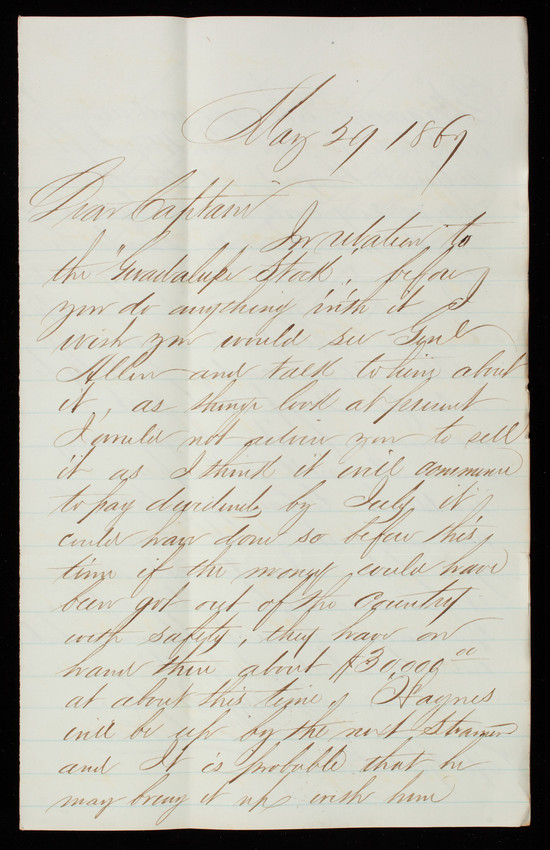 May 29 1867
Dear Captain
In relation to
the "Guadalupe Stock", before
you do anything with it I
wish you would see Genl
Allen and talk to him about
it, as things look at present
I would not advise you to sell
it as I think it will commence
to pay dividends by July it
could have done so before this
time if the money could have
been got out of the country
with safety, they have on
hand there about $30,000
at about this time, Haynes
will be up by the next Steamer
and It is probable that he
may bring it up with him